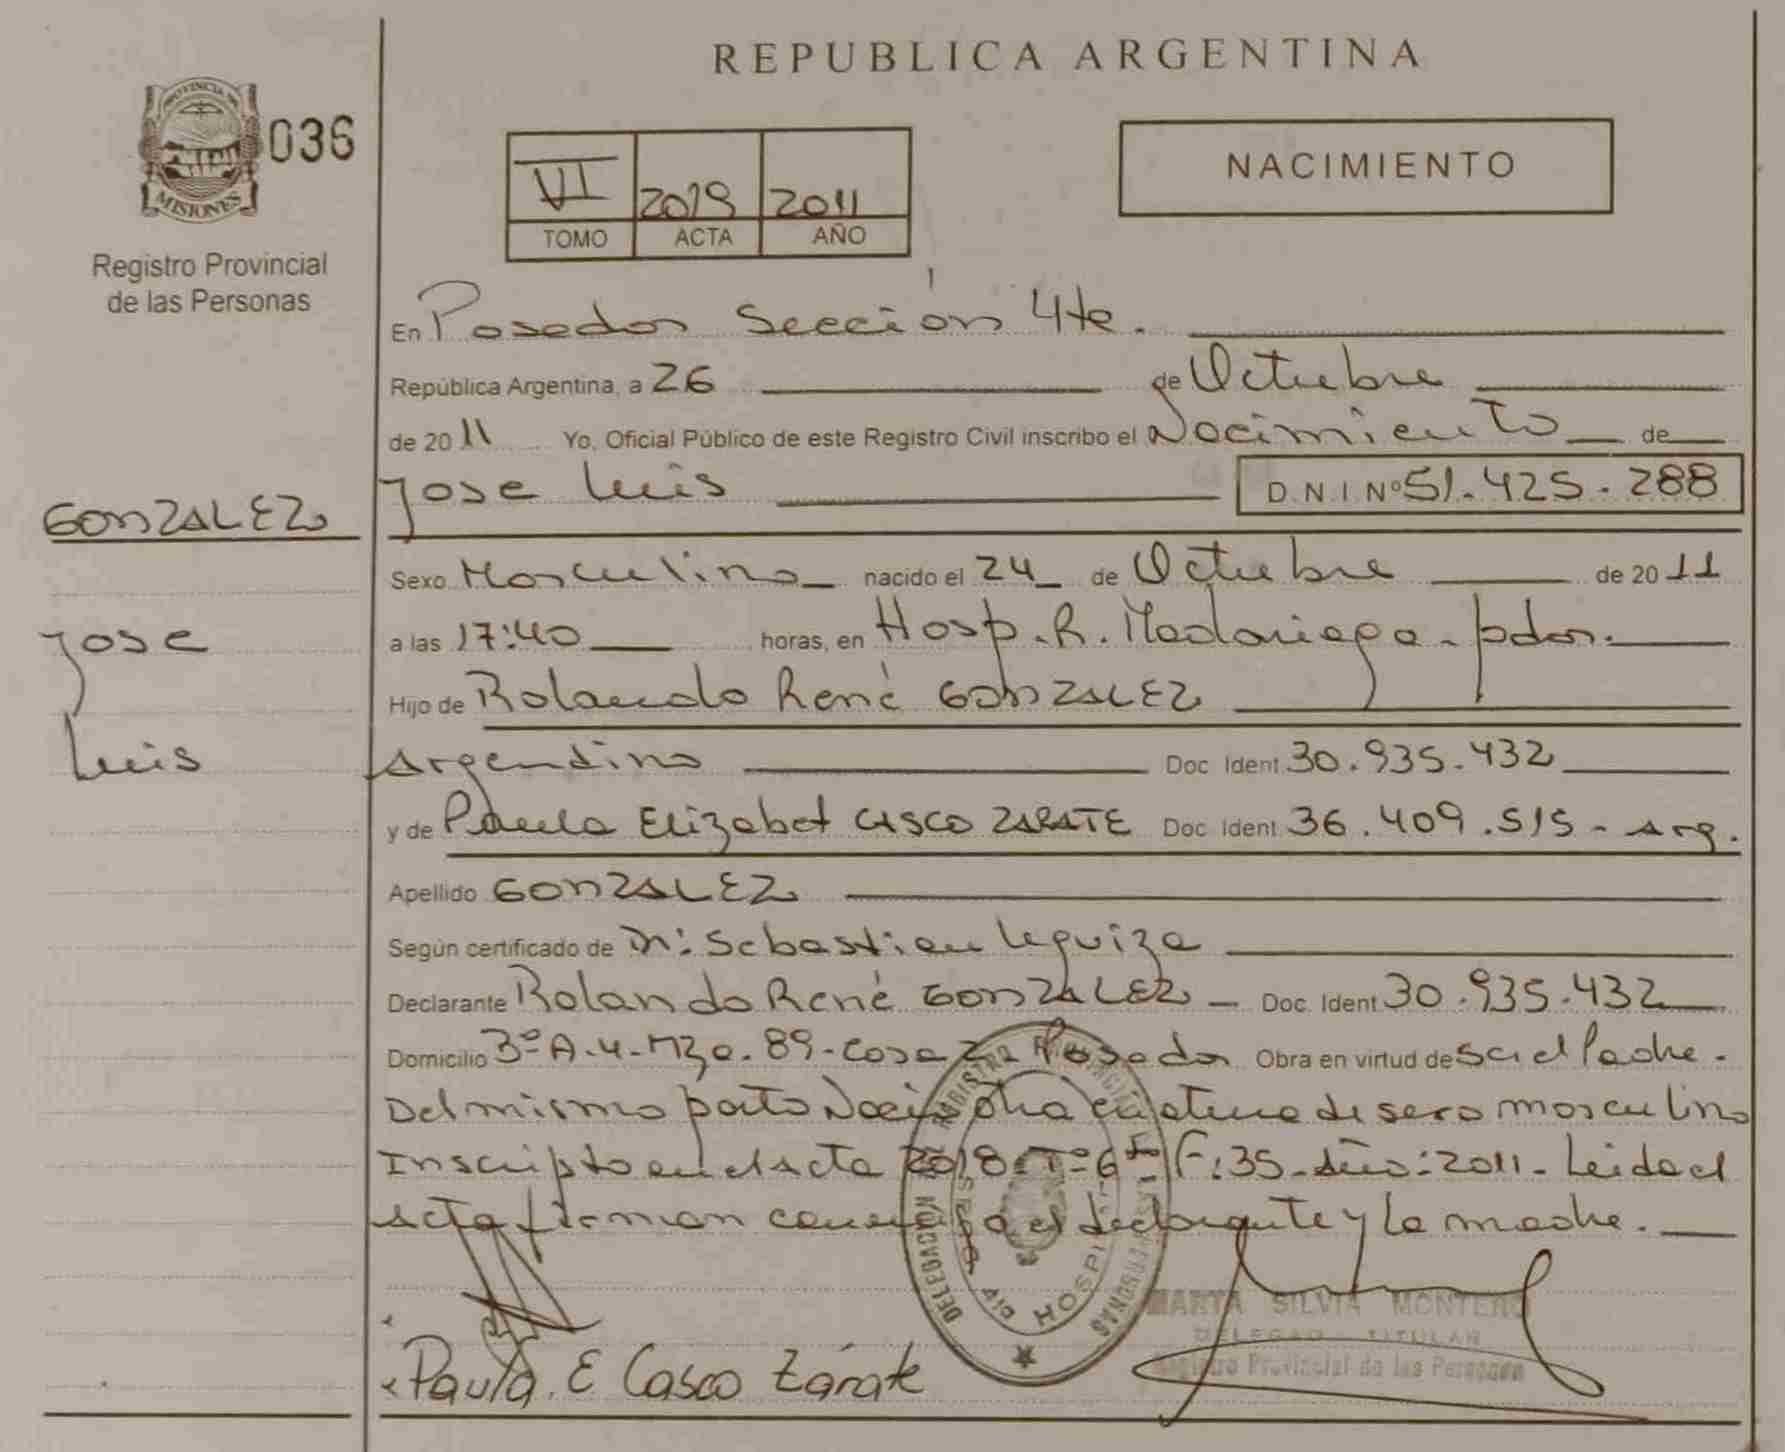 REPUBLICA ARGENTINA
PROVINCIA DE
MISIONES
036
Registro Provincial
de las Personas
VI 2019 2011
TOMO ACTA AÑO
NACIMIENTO
En Posadas Sección 4ta.
República Argentina, a 26 de Octubre
de 2011 Yo, Oficial Público de este Registro Civil inscribo el Nacimiento de
Jose Luis D.N.I Nº 51.425.288
GONZALEZ
Jose
Luis
Sexo Masculino nacido el 24 de Octubre de 2011
a las 17:40 horas, en Hosp. R. Madariaga - pdas.
Hijo de Rolando René GONZALEZ
Argentino Doc Ident. 30.935.432
y de Paula Elizabet CASCO ZARATE Doc Ident. 36.409.515 - Arg.
Apellido GONZALEZ
Según certificado de Dr: Sebastian Leguiza
Declarante Rolando René GONZALEZ - Doc. Ident. 30.935.432
Domicilio 3º A-4-Mza. 89-Casa 2 Posadas Obra en virtud de ser el Padre -
Del mismo parto Nació otra criatura de sexo masculino
Inscripto en el Acta 2018 Tº 6 F: 35 - Año: 2011 - Leida el
Acta firman conmigo el declarante y la madre.
Paula. E Casco Zárate
MARTA SILVIA MONTERO
DELEGADO TITULAR
Registro Provincial de las Personas